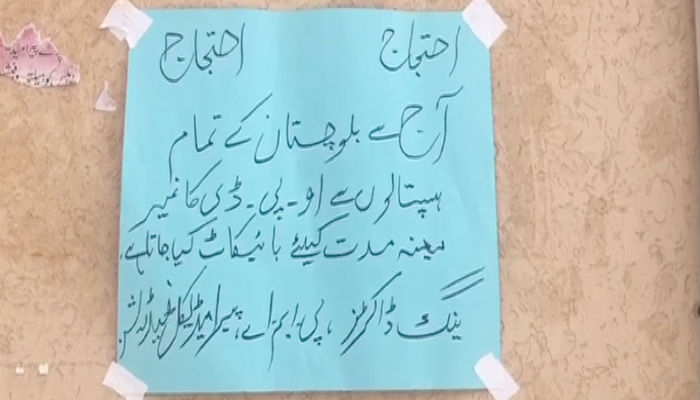 احتجاج احتجاج
آج سے بلوچستان کے تمام
ہسپتالوں سے او۔پی۔ڈی کا غیر
معینہ مدت کیلئے بائیکاٹ کیا جاتا ہے۔
ینگ ڈاکٹرز، پی ایم اے، پیرامیڈیکل